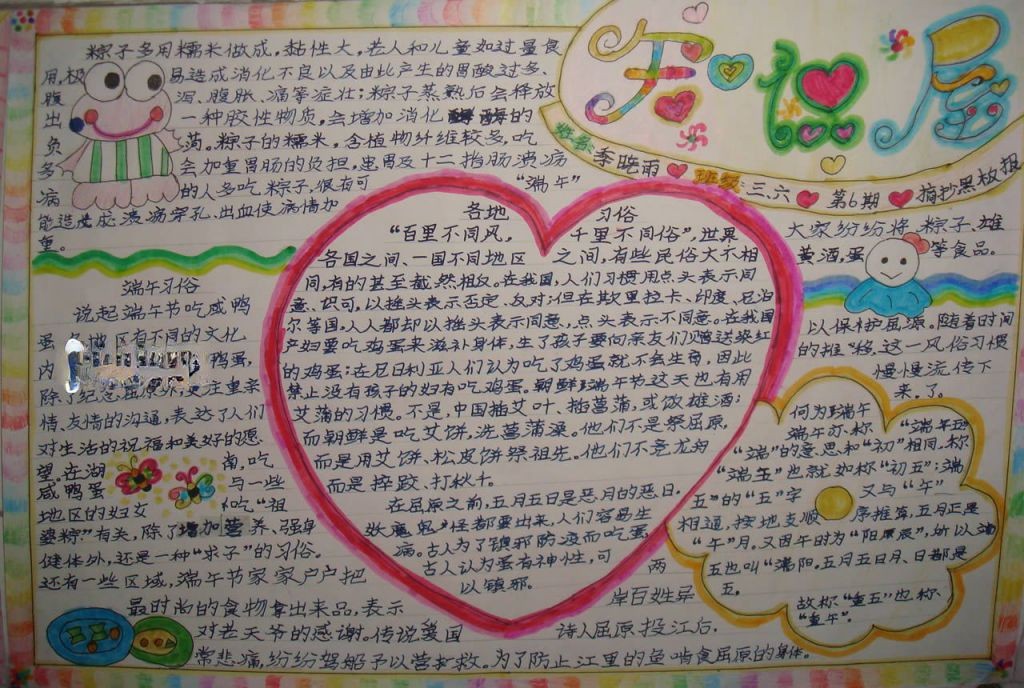 知识屋
姓名:李晓雨 班级:三、六 第6期 摘抄黑板报
粽子多用糯米做成,黏性大,老人和儿童如过量食
用,极易造成消化不良以及由此产生的胃酸过多、
腹泻、腹胀、痛等症壮;粽子蒸熟后会释放
出一种胶性物质,会增加消化酵的
负荷。粽子的糯米,含植物纤维较多,吃
多会加重胃肠的负担,患胃及十二抬肠溃疡
病的人多吃粽子,很有可
能造成溃疡穿孔、出血使病情加
重。
端午习俗
说起端午节吃咸鸭
蛋 地区有不同的文化
内 鸭蛋,
除了纪念屈原外,更注重亲
情、友情的沟通,表达了人们
对生活的祝福和美好的愿
望。在湖南,吃
咸鸭蛋与一些
地区的妇女吃“祖
婆粽”有关,除了增加营养、强身
健体外,还是一种“求子”的习俗。
还有一些区域,端午节家家户户把
最时尚的食物拿出来品,表示
对老天爷的感谢。传说爱国
“端午”
各地习俗
“百里不同风,千里不同俗”,世界
各国之间、一国不同地区之间,有些民俗大不相
同,有的甚至截然相反。在我国,人们习惯用点头表示同
意、识可,以摇头表示否定、反对;但在斯里拉卡、印度、尼泊
尔等国,人人都却以摇头表示同意,点头表示不同意。在我国
产妇要吃鸡蛋来滋补身体,生了孩子要向亲友们赠送染红
的鸡蛋;在尼日利亚人们认为吃了鸡蛋就不会生育,因此
禁止没有孩子的妇有吃鸡蛋。朝鲜端午节这天也有用
艾蒲的习惯。不是,中国插艾叶、插菖蒲,或饮雄酒;
而朝鲜是吃艾饼,洗菖蒲澡。他们不是祭屈原,
而是用艾饼、松皮饼祭祖先。他们不竞龙舟
而是摔跤、打秋千。
在屈原之前,五月五日是恶月的恶日,
妖魔鬼怪都要出来,人们容易生
病。古人为了镇邪防疫而吃蛋,
古人认为蛋有神性,可
以镇邪。
两
岸百姓异
诗人屈原投江后,
常悲痛,纷纷驾船予以营救。为了防止江里的鱼啃食屈原的身体。
大家纷纷将粽子、雄
黄酒,蛋等食品。
以保护屈原。随着时间
的推移,这一风俗习惯
慢慢流传下
来了。
何为端午
端午亦称“端午五”
“端”的意思和“初”相同,称
“端五”也就如称“初五”;端
五”的“五”字又与“午”
相通,按地支顺序推算,五月正是
“午”月。又因午时为“阳辰”,所以端
五也叫“端阳。五月五日月、日都是
五。
故称“重五”也称、
“重午”。